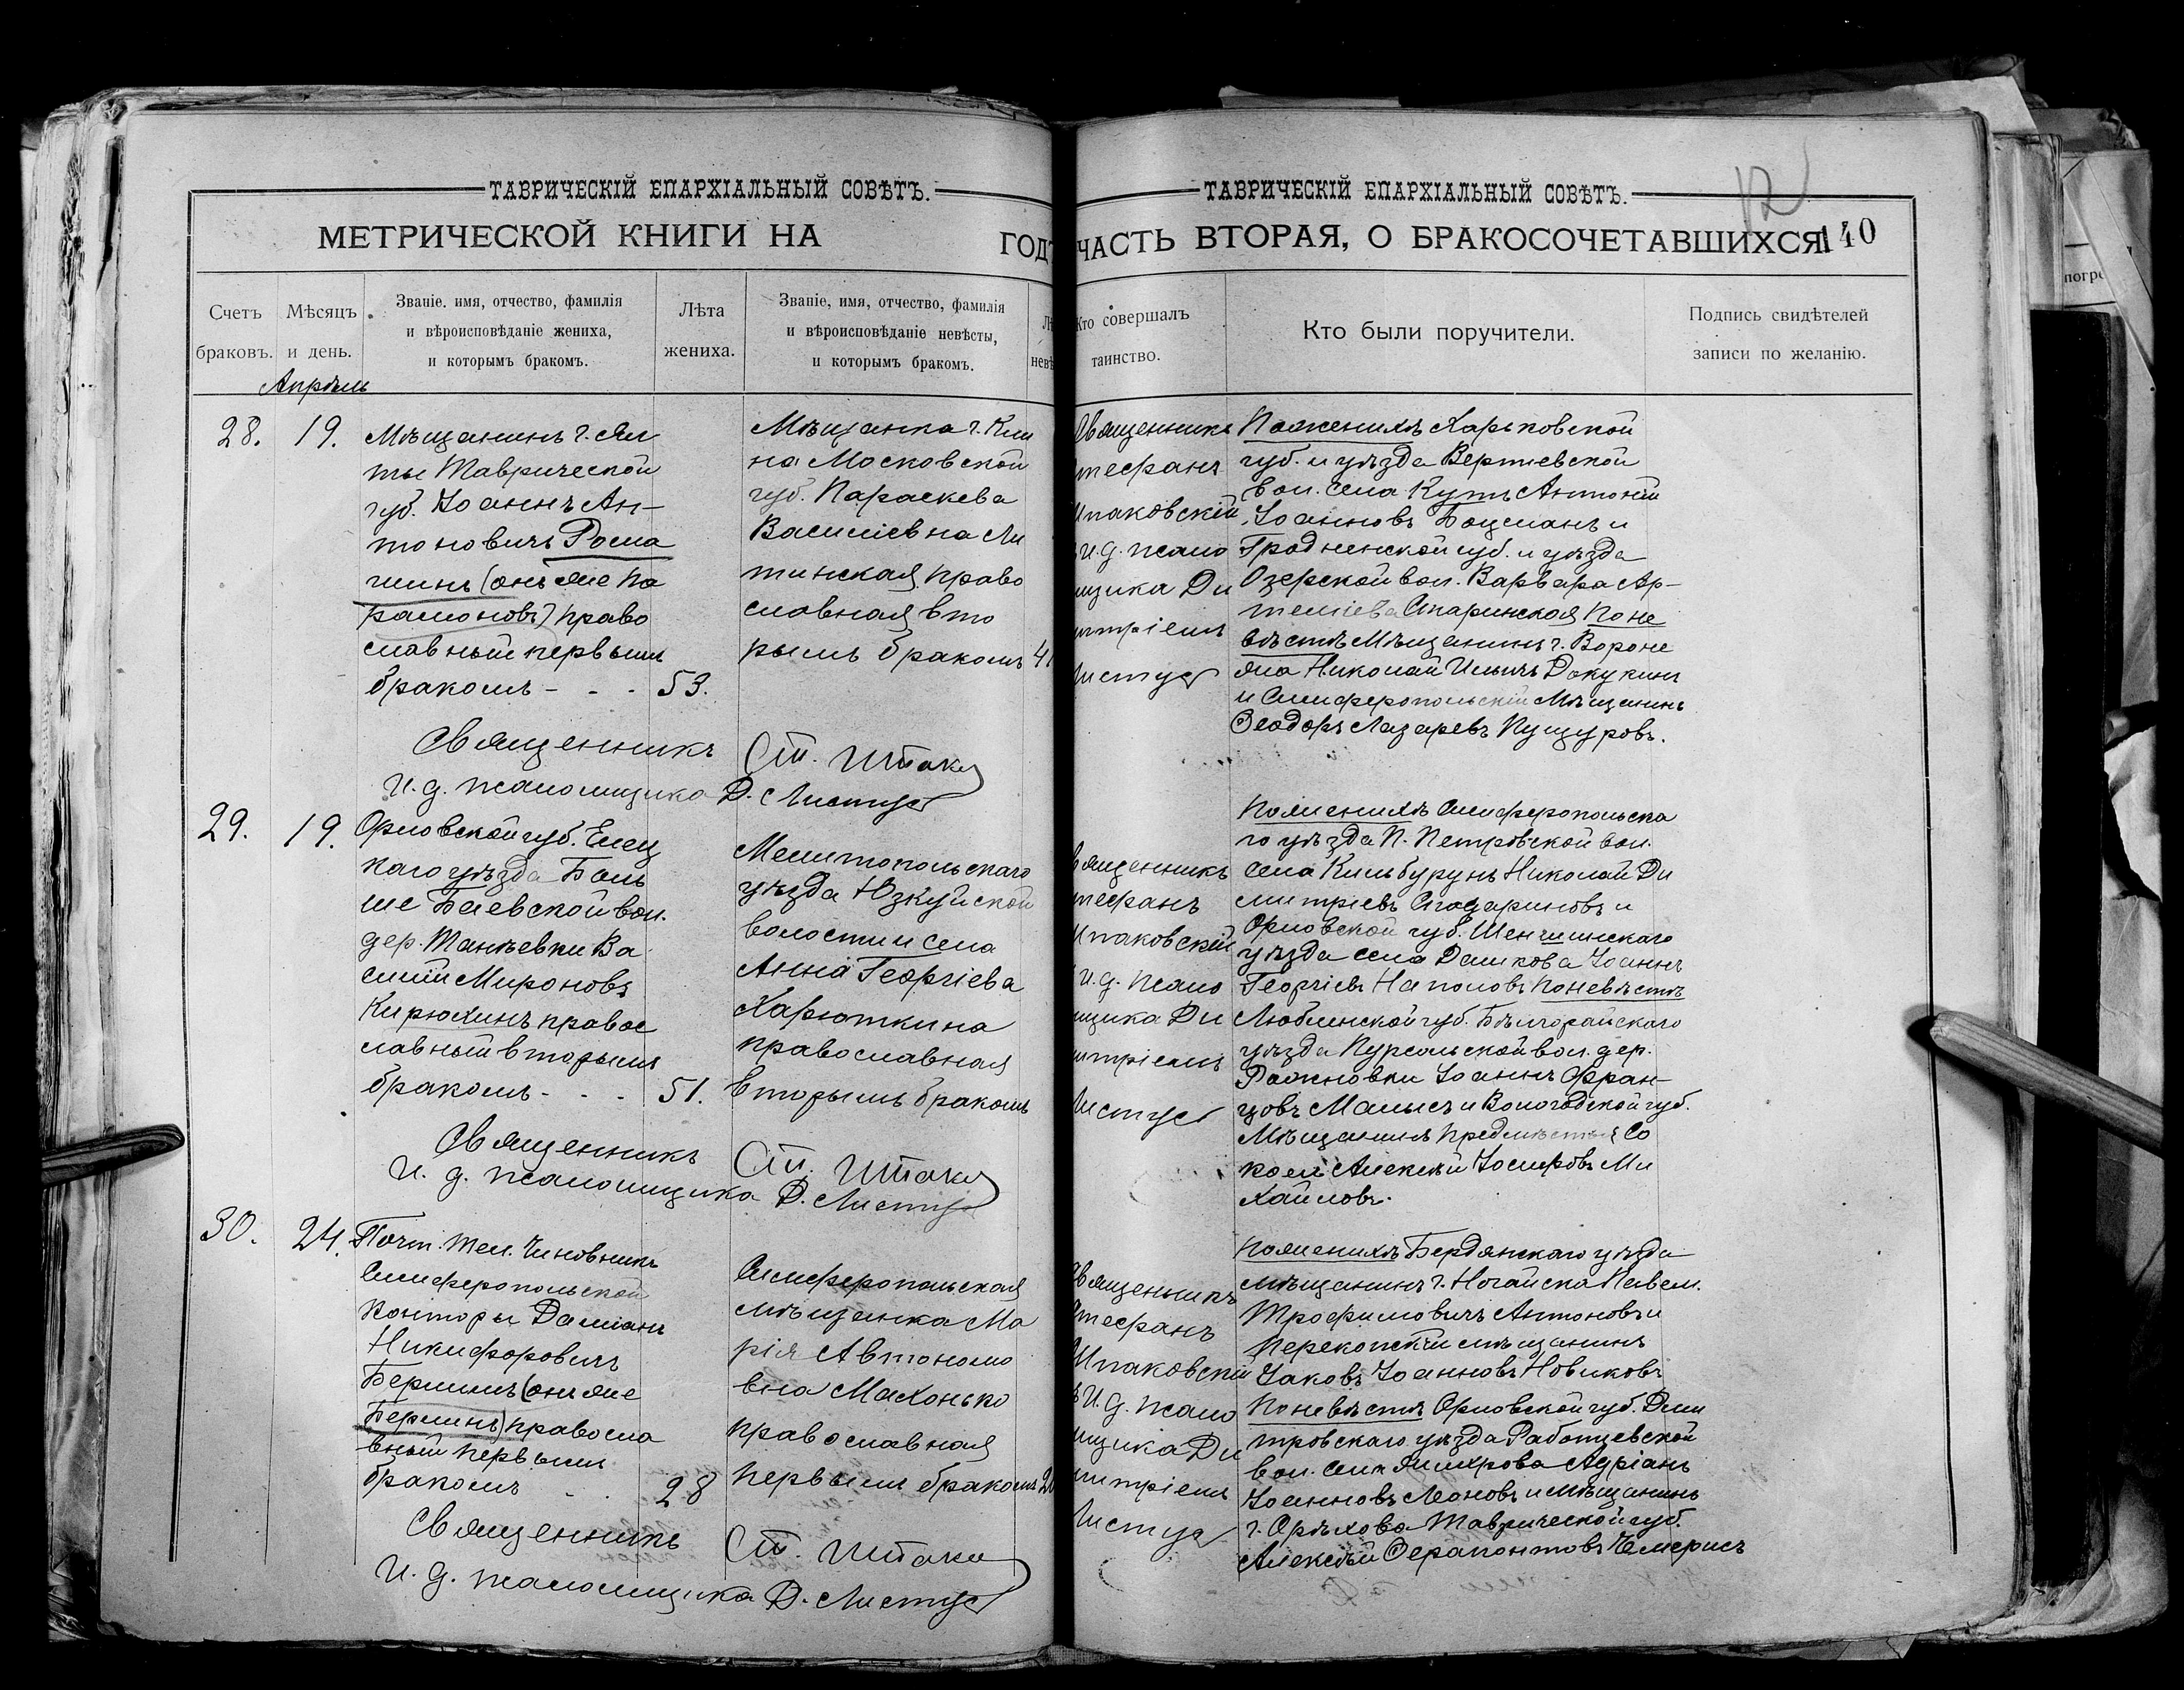 ТАВРИЧЕСКІЙ ЕПАРХІАЛЬНЫЙ СОВѢТЪ.
МЕТРИЧЕСКОЙ КНИГИ НА ГОДЪ
Счетъ браковъ.
Мѣсяцъ и день.
Званіе. имя, отчество, фамилія
и вѣроисповѣданіе жениха,
и которымъ бракомъ.
Лѣта жениха.
Званіе, имя, отчество, фамилія
и вѣроисповѣданіе невѣсты,
и которымъ бракомъ.
Апрѣль
28. 19.
Мѣщанинъ г. Ял
ты Таврической
губ. Іоаннъ Ан-
тоновичъ Рома
шинъ (онъ же Па
рамоновъ) право
славный первымъ
бракомъ - - - 53.
Мѣщанка г. Кли
на Московской
губ. Параскева
Василіевна Ли
тинская право
славная вто
рымъ бракомъ 41
Священникъ Ст. Шпак
И. д. псаломщика Д. Листус
29. 19.
Орловской губ. Елец
каго уѣзда Боль
ше Баевской вол.
дер. Танѣевки Ва
силій Мироновъ
Кирюхинъ правос
лавный вторымъ
бракомъ - - - 51.
Мелитопольскаго
уѣзда Юзкуйской
волости и села
Анна Георгіева
Харюткина
православная
вторымъ бракомъ
Священникъ Ст. Шпак
И. д. псаломщика Д. Листус
30. 24.
Почт. тел. Чиновникъ
Симферопольской
Конторы Даміанъ
Никифоровичъ
Берлимъ (онъ же
Берлинъ) правосла
вный первымъ
бракомъ - - 28
Симферопольская
мѣщанка Ма
рія Автономо
вна Махонько
православная
первымъ бракомъ 20
Священникъ Ст. Шпак
И. д. псаломщика Д. Листус
ТАВРИЧЕСКІЙ ЕПАРХІАЛЬНЫЙ СОВѢТЪ.
12
ЧАСТЬ ВТОРАЯ, О БРАКОСОЧЕТАВШИХСЯ
140
Кто совершалъ
таинство.
Кто были поручители.
Подпись свидѣтелей
записи по желанію.
Священникъ
Стефанъ
Шпаковскій
И. д. псало
мщика Ди
митріемъ
Листус
По женихѣ Харьковской
губ. и уѣзда Вертіевской
вол. села Куть Антоній
Іоанновъ Боцманъ и
Гродненской губ. и уѣзда
Озерской вол. Варвара Ар-
теміева Старинская По не
вѣстѣ Мѣщанинъ г. Вороне
жа Николай Ильичъ Докукинъ
и Симферопольскій Мѣщанинъ
Ѳеодоръ Лазаревъ Пущуровъ.
Священникъ
Стефанъ
Шпаковскій
И. д. псало
мщика Ди
митріемъ
Листус
По женихѣ Симферопольска
го уѣзда П. Петровской вол.
села Кильбурунъ Николай Ди
митріевъ и
Орловской губ.
уѣзда села Дашкова Іоаннъ
Георгіевъ Наполовъ По невѣстѣ
Люблинской губ. Бѣлгорайскаго
уѣзда вол. дер.
Рожновки Іоаннъ Фран-
цовъ Малысъ и Вологодской губ.
Мѣщанинъ предмѣстья Со
колъ Алексѣй Іосифовъ Ми
хайловъ.
Священникъ
Стефанъ
Шпаковскій
И. д. псало
мщика Ди
митріемъ
Листус
По женихѣ Бердянскаго уѣзда
мѣщанинъ г. Ногайска Павелъ
Трофимовичъ Антоновъ и
Перекопскій мѣщанинъ
Іаковъ Іоанновъ Новиковъ
По невѣстѣ Орловской губ. Дми
тровскаго уѣзда Работьевской
вол. села Адріанъ
Іоанновъ Леоновъ и Мѣщанинъ
г. Орѣхова Таврической губ.
Алексѣй Ѳерапонтовъ Чемерисъ